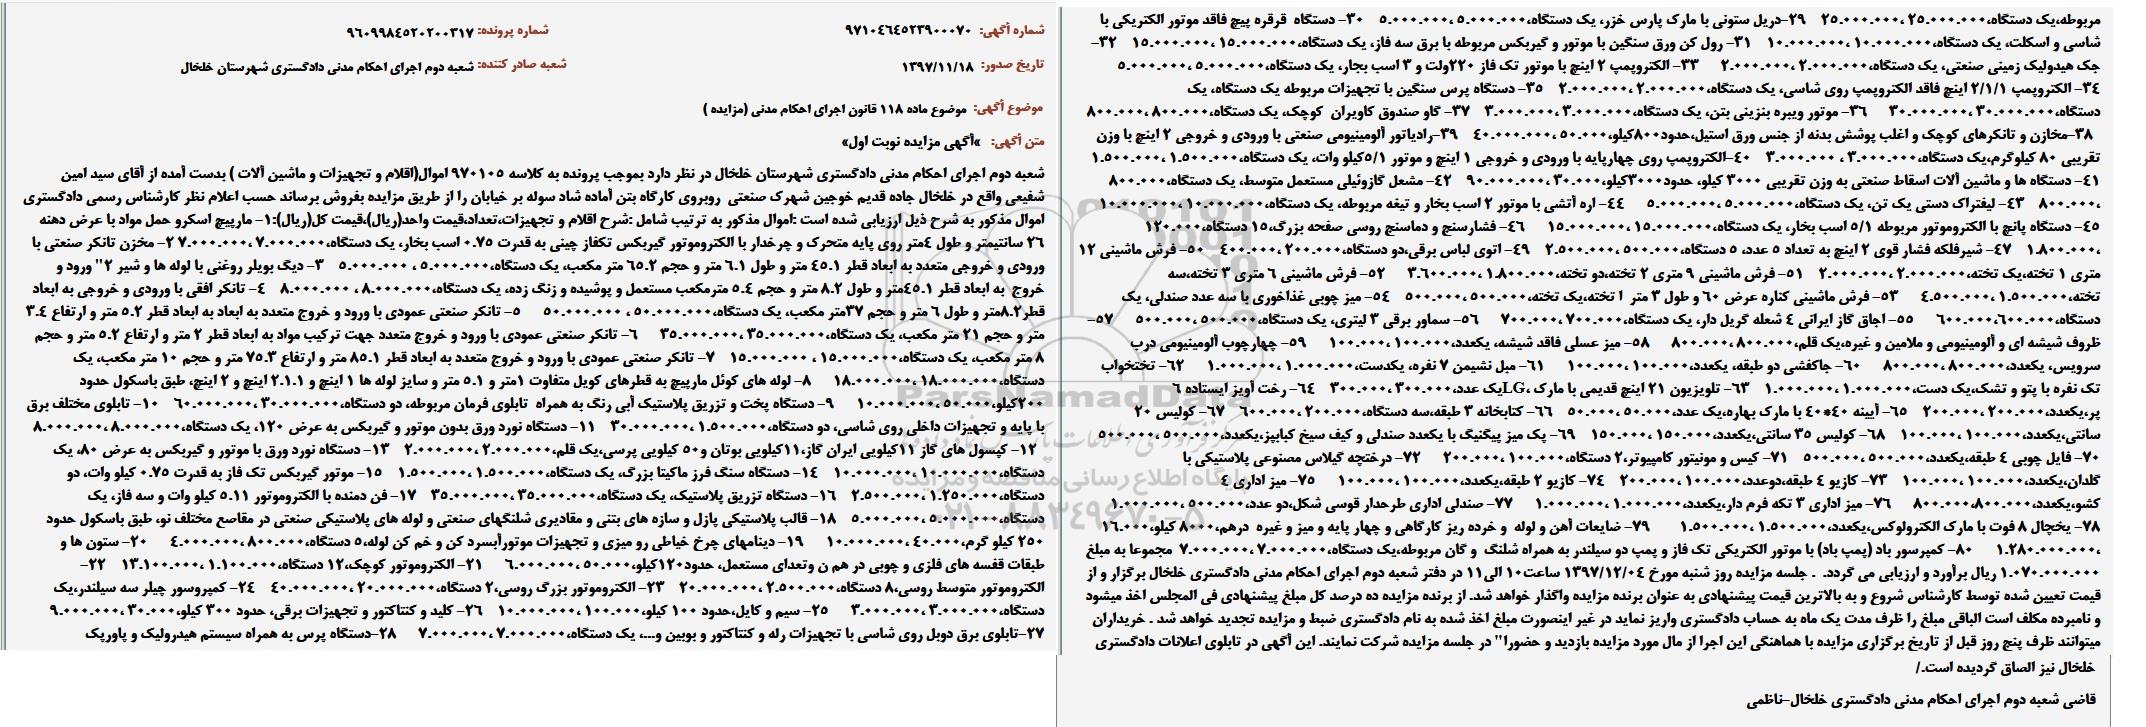 شماره آگهی: ۹۷۱۰۴۶۴۵۲۳۹۰۰۰۷۰ شماره پرونده: ۹۶۰۹۹۸۴۵۲۰۲۰۰۳۱۷
تاریخ صدور: ۱۳۹۷/۱۱/۱۸ شعبه صادر کننده: شعبه دوم اجرای احکام مدنی دادگستری شهرستان خلخال
موضوع آگهی: موضوع ماده ۱۱۸ قانون اجرای احکام مدنی (مزایده )
متن آگهی: »آگهی مزایده نوبت اول«
شعبه دوم اجرای احکام مدنی دادگستری شهرستان خلخال در نظر دارد بموجب پرونده به کلاسه ۹۷۰۱۰۵ اموال(اقلام و تجهیزات و ماشین آلات ) بدست آمده از آقای سید امین
شفیعی واقع در خلخال جاده قدیم خوجین شهرک صنعتی روبروی کارگاه بتن آماده شاد سوله بر خیابان را از طریق مزایده بفروش برساند حسب اعلام نظر کارشناس رسمی دادگستری
اموال مذکور به شرح ذیل ارزیابی شده است :اموال مذکور به ترتیب شامل :شرح اقلام و تجهیزات،تعداد،قیمت واحد(ریال)،قیمت کل(ریال):۱- مارپیچ اسکرو حمل مواد با عرض دهنه
۲۶ سانتیمتر و طول ۴متر روی پایه متحرک و چرخدار با الکتروموتور گیربکس تکفاز چینی به قدرت ۰.۷۵ اسب بخار، یک دستگاه،۷.۰۰۰.۰۰۰ ،۷.۰۰۰.۰۰۰ ۲- مخزن تانکر صنعتی با
ورودی و خروجی متعدد به ابعاد قطر ۴۵.۱ متر و طول ۶.۱ متر و حجم ۶۵.۲ متر مکعب، یک دستگاه،۵.۰۰۰.۰۰۰ ، ۵.۰۰۰.۰۰۰ ۳- دیگ بویلر روغنی با لوله ها و شیر ۲" ورود و
خروج به ابعاد قطر ۴۵.۱متر و طول ۸.۲ متر و حجم ۴.۵ مترمکعب مستعمل و پوشیده و زنگ زده، یک دستگاه،۸.۰۰۰.۰۰۰ ، ۸.۰۰۰.۰۰۰ ۴- تانکر افقی با ورودی و خروجی به ابعاد
قطر۸.۲متر و طول ۶ متر و حجم ۳۷متر مکعب، یک دستگاه،۵۰.۰۰۰.۰۰۰ ، ۵۰.۰۰۰.۰۰۰ ۵- تانکر صنعتی عمودی با ورود و خروج متعدد به ابعاد به ابعاد قطر ۵.۲ متر و ارتفاع ۴.۳
متر و حجم ۲۱ متر مکعب، یک دستگاه،۳۵.۰۰۰.۰۰۰ ،۳۵.۰۰۰.۰۰۰ ۶- تانکر صنعتی عمودی با ورود و خروج متعدد جهت ترکیب مواد به ابعاد قطر ۲ متر و ارتفاع ۵.۲ متر و حجم
۸ متر مکعب، یک دستگاه،۱۵.۰۰۰.۰۰۰ ، ۱۵.۰۰۰.۰۰۰ ۷- تانکر صنعتی عمودی با ورود و خروج متعدد به ابعاد قطر ۸۵.۱ متر و ارتفاع ۷۵.۳ متر و حجم ۱۰ متر مکعب، یک
دستگاه،۱۸.۰۰۰.۰۰۰ ،۱۸.۰۰۰.۰۰۰ ۸- لوله های کوئل مارپیچ به قطرهای کویل متفاوت ۱متر و ۵.۱ متر و سایز لوله ها ۱ اینچ و ۱.۱-۲ اینچ و ۲ اینچ، طبق باسکول حدود
۲۰۰کیلو،۵۰.۰۰۰ ،۱۰.۰۰۰.۰۰۰ ۹- دستگاه پخت و تزریق پلاستیک آبی رنگ به همراه تابلوی فرمان مربوطه، دو دستگاه،۳۰.۰۰۰.۰۰۰ ،۶۰.۰۰۰.۰۰۰ ۱۰- تابلوی مختلف برق
با پایه و تجهیزات داخلی روی شاسی، دو دستگاه،۱.۵۰۰.۰۰۰ ،۳۰.۰۰۰.۰۰۰ ۱۱- دستگاه نورد ورق بدون موتور و گیربکس به عرض ۱۲۰، یک دستگاه،۸.۰۰۰.۰۰۰ ،۸.۰۰۰.۰۰۰
۱۲- کپسول های گاز ۱۱کیلویی ایران گاز،۱۱کیلویی بوتان و۵۰ کیلویی پرسی،یک قلم،۲.۰۰۰.۰۰۰ ،۲.۰۰۰.۰۰۰ ۱۳- دستگاه نورد ورق با موتور و گیربکس به عرض ۸۰، یک
دستگاه،۱۰.۰۰۰.۰۰۰ ،۱۰.۰۰۰.۰۰۰ ۱۴- دستگاه سنگ فرز ماکیتا بزرگ، یک دستگاه،۱.۵۰۰.۰۰۰ ،۱.۵۰۰.۰۰۰ ۱۵- موتور گیربکس تک فاز به قدرت ۰.۷۵ کیلو وات، دو
دستگاه،۱.۲۵۰.۰۰۰ ،۲.۵۰۰.۰۰۰ ۱۶- دستگاه تزریق پلاستیک، یک دستگاه،۳۵.۰۰۰.۰۰۰ ،۳۵.۰۰۰.۰۰۰ ۱۷- فن دمنده با الکتروموتور ۵.۱۱ کیلو وات و سه فاز، یک
دستگاه،۵.۰۰۰.۰۰۰ ،۵.۰۰۰.۰۰۰ ۱۸- قالب پلاستیکی پازل و سازه های بتنی و مقادیری شلنگهای صنعتی و لوله های پلاستیکی صنعتی در مقاصع مختلف نو، طبق باسکول حدود
۲۵۰ کیلو گرم،۴۰.۰۰۰ ،۱۰.۰۰۰.۰۰۰ ۱۹- دینامهای چرخ خیاطی رو میزی و تجهیزات موتورآبسرد کن و خم کن لوله،۵ دستگاه،۸۰۰.۰۰۰ ،۴.۰۰۰.۰۰۰ ۲۰- ستون ها و
طبقات قفسه های فلزی و چوبی در هم ن وتعدای مستعمل، حدود۱۲۰کیلو،۵۰.۰۰۰ ،۶.۰۰۰.۰۰۰ ۲۱- الکتروموتور کوچک،۱۲ دستگاه،۱.۱۰۰.۰۰۰ ،۱۳.۱۰۰.۰۰۰ ۲۲-
الکتروموتور متوسط روسی،۸ دستگاه،۲.۵۰۰.۰۰۰ ،۲۰.۰۰۰.۰۰۰ ۲۳- الکتروموتور بزرگ روسی،۲ دستگاه،۲۰.۰۰۰.۰۰۰ ،۴۰.۰۰۰.۰۰۰ ۲۴- کمپروسور چیلر سه سیلندر،یک
دستگاه،۳.۰۰۰.۰۰۰ ،۳.۰۰۰.۰۰۰ ۲۵- سیم و کابل،حدود ۱۰۰ کیلو،۱۰۰.۰۰۰ ،۱۰.۰۰۰.۰۰۰ ۲۶- کلید و کنتاکتور و تجهیزات برقی، حدود ۳۰۰ کیلو،۳۰.۰۰۰ ،۹.۰۰۰.۰۰۰
۲۷-تابلوی برق دوبل روی شاسی با تجهیزات رله و کنتاکتور و بوبین و...، یک دستگاه،۷.۰۰۰.۰۰۰ ،۷.۰۰۰.۰۰۰ ۲۸-دستگاه پرس به همراه سیستم هیدرولیک و پاورپک
مربوطه،یک دستگاه،۲۵.۰۰۰.۰۰۰ ،۲۵.۰۰۰.۰۰۰ ۲۹-دریل ستونی با مارک پارس خزر، یک دستگاه،۵.۰۰۰.۰۰۰ ،۵.۰۰۰.۰۰۰ ۳۰- دستگاه قرقره پیچ فاقد موتور الکتریکی با
شاسی و اسکلت، یک دستگاه،۱۰.۰۰۰.۰۰۰ ،۱۰.۰۰۰.۰۰۰ ۳۱- رول کن ورق سنگین با موتور و گیربکس مربوطه با برق سه فاز، یک دستگاه،۱۵.۰۰۰.۰۰۰ ،۱۵.۰۰۰.۰۰۰ ۳۲-
جک هیدولیک زمینی صنعتی، یک دستگاه،۲.۰۰۰.۰۰۰ ،۲.۰۰۰.۰۰۰ ۳۳- الکتروپمپ ۲ اینچ با موتور تک فاز ۲۲۰ولت و ۳ اسب بخار، یک دستگاه،۵.۰۰۰.۰۰۰ ،۵.۰۰۰.۰۰۰
۳۴- الکتروپمپ ۲/۱/۱ اینچ فاقد الکتروپمپ روی شاسی، یک دستگاه،۲.۰۰۰.۰۰۰ ،۲.۰۰۰.۰۰۰ ۳۵- دستگاه پرس سنگین با تجهیزات مربوطه یک دستگاه، یک
دستگاه،۳۰.۰۰۰.۰۰۰ ،۳۰.۰۰۰.۰۰۰ ۳۶- موتور ویبره بنزینی بتن، یک دستگاه،۳.۰۰۰.۰۰۰ ،۳.۰۰۰.۰۰۰ ۳۷- گاو صندوق کاویران کوچک، یک دستگاه،۸۰۰.۰۰۰ ،۸۰۰.۰۰۰
۳۸-مخازن و تانکرهای کوچک و اغلب پوشش بدنه از جنس ورق استیل،حدود۸۰۰کیلو،۵۰.۰۰۰ ،۴۰.۰۰۰.۰۰۰ ۳۹-رادیاتور آلومینیومی صنعتی با ورودی و خروجی ۲ اینچ با وزن
تقریبی ۸۰ کیلوگرم،یک دستگاه،۳.۰۰۰.۰۰۰ ، ۳.۰۰۰.۰۰۰ ۴۰-الکتروپمپ روی چهارپایه با ورودی و خروجی ۱ اینچ و موتور ۵/۱کیلو وات، یک دستگاه،۱.۵۰۰.۰۰۰ ،۱.۵۰۰.۰۰۰
۴۱- دستگاه ها و ماشین آلات اسقاط صنعتی به وزن تقریبی ۳۰۰۰ کیلو، حدود۳۰۰۰کیلو،۳۰.۰۰۰ ،۹۰.۰۰۰.۰۰۰ ۴۲- مشعل گازوئیلی مستعمل متوسط، یک دستگاه،۸۰۰.۰۰۰
،۸۰۰.۰۰۰ ۴۳- لیفتراک دستی یک تن، یک دستگاه،۵.۰۰۰.۰۰۰ ،۵.۰۰۰.۰۰۰ ۴۴- اره آتشی با موتور ۲ اسب بخار و تیغه مربوطه، یک دستگاه،۱۰.۰۰۰.۰۰۰ ،۱۰.۰۰۰.۰۰۰
۴۵- دستگاه پانچ با الکتروموتور مربوطه ۵/۱ اسب بخار، یک دستگاه،۱۵.۰۰۰.۰۰۰ ،۱۵.۰۰۰.۰۰۰ ۴۶- فشارسنج و دماسنج روسی صفحه بزرگ،۱۵ دستگاه،۱۲۰.۰۰۰
،۱.۸۰۰.۰۰۰ ۴۷- شیرفلکه فشار قوی ۲ اینچ به تعداد ۵ عدد، ۵ دستگاه،۵۰۰.۰۰۰ ،۲.۵۰۰.۰۰۰ ۴۹- اتوی لباس برقی،دو دستگاه،۲۰۰.۰۰۰ ،۴۰۰.۰۰۰ ۵۰- فرش ماشینی ۱۲
متری ۱ تخته،یک تخته،۲.۰۰۰.۰۰۰ ،۲.۰۰۰.۰۰۰ ۵۱- فرش ماشینی ۹ متری ۲ تخته،دو تخته،۱.۸۰۰.۰۰۰ ،۳.۶۰۰.۰۰۰ ۵۲- فرش ماشینی ۶ متری ۳ تخته،سه
تخته،۱.۵۰۰.۰۰۰ ،۴.۵۰۰.۰۰۰ ۵۳- فرش ماشینی کناره عرض ۶۰ و طول ۳ متر ۱ تخته،یک تخته،۵۰۰.۰۰۰ ،۵۰۰.۰۰۰ ۵۴- میز چوبی غذاخوری با سه عدد صندلی، یک
دستگاه،۶۰۰.۰۰۰،۶۰۰.۰۰۰ ۵۵- اجاق گاز ایرانی ۴ شعله گریل دار، یک دستگاه،۷۰۰.۰۰۰ ،۷۰۰.۰۰۰ ۵۶- سماور برقی ۳ لیتری، یک دستگاه،۵۰۰.۰۰۰ ،۵۰۰.۰۰۰ ۵۷-
ظروف شیشه ای و آلومینیومی و ملامین و غیره،یک قلم،۸۰۰.۰۰۰ ،۸۰۰.۰۰۰ ۵۸- میز عسلی فاقد شیشه، یکعدد،۱۰۰.۰۰۰ ،۱۰۰.۰۰۰ ۵۹- چهارچوب آلومینیومی درب
سرویس، یکعدد،۸۰۰.۰۰۰ ،۸۰۰.۰۰۰ ۶۰- جاکفشی دو طبقه، یکعدد،۱۰۰.۰۰۰ ،۱۰۰.۰۰۰ ۶۱- مبل نشیمن ۷ نفره، یکدست،۱.۰۰۰.۰۰۰ ،۱.۰۰۰.۰۰۰ ۶۲- تختخواب
تک نفره با پتو و تشک،یک دست،۱.۰۰۰.۰۰۰ ،۱.۰۰۰.۰۰۰ ۶۳- تلویزیون ۲۱ اینچ قدیمی با مارک LG،یک عدد،۳۰۰.۰۰۰ ،۳۰۰.۰۰۰ ۶۴- رخت آویز ایستاده ۶
پر،یکعدد،۲۰۰.۰۰۰ ،۲۰۰.۰۰۰ ۶۵- آیینه ۴۰*۴۰ با مارک بهاره،یک عدد،۵۰.۰۰۰ ،۵۰.۰۰۰ ۶۶- کتابخانه ۳ طبقه،سه دستگاه،۲۰۰.۰۰۰ ،۶۰۰.۰۰۰ ۶۷- کولیس ۲۰
سانتی،یکعدد،۱۰۰.۰۰۰ ،۱۰۰.۰۰۰ ۶۸- کولیس ۳۵ سانتی،یکعدد،۱۵۰.۰۰۰ ،۱۵۰.۰۰۰ ۶۹- پک میز پیگنیگ با یکعدد صندلی و کیف سیخ کبابپز،یکعدد،۵۰۰.۰۰۰ ،۵۰۰.۰۰۰
۷۰- فایل چوبی ۴ طبقه،یکعدد،۵۰۰.۰۰۰ ،۵۰۰.۰۰۰ ۷۱- کیس و مونیتور کامپیوتر،۲ دستگاه،۱۰۰.۰۰۰ ،۲۰۰.۰۰۰ ۷۲- درختچه گیلاس مصنوعی پلاستیکی با
گلدان،یکعدد،۱۰۰.۰۰۰ ،۱۰۰.۰۰۰ ۷۳- کازیو ۴ طبقه،دوعدد،۱۰۰.۰۰۰ ،۲۰۰.۰۰۰ ۷۴- کازیو ۲ طبقه،یکعدد،۱۰۰.۰۰۰ ،۱۰۰.۰۰۰ ۷۵- میز اداری ۴
کشو،یکعدد،۸۰۰.۰۰۰،۸۰۰.۰۰۰ ۷۶- میز اداری ۳ تکه فرم دار،یکعدد،۱.۰۰۰.۰۰۰ ،۱.۰۰۰.۰۰۰ ۷۷- صندلی اداری طرحدار قوسی شکل،دو عدد،۵۰۰.۰۰۰ ،۱.۰۰۰.۰۰۰
۷۸- یخچال ۸ فوت با مارک الکترولوکس،یکعدد،۱.۵۰۰.۰۰۰ ،۱.۵۰۰.۰۰۰ ۷۹- ضایعات آهن و لوله و خرده ریز کارگاهی و چهار پایه و میز و غیره درهم،۸۰۰۰ کیلو،۱۶.۰۰۰
،۱.۲۸۰.۰۰۰.۰۰۰ ۸۰- کمپرسور باد (پمپ باد) با موتور الکتریکی تک فاز و پمپ دو سیلندر به همراه شلنگ و گان مربوطه،یک دستگاه،۷.۰۰۰.۰۰۰ ،۷.۰۰۰.۰۰۰ مجموعا به مبلغ
۱.۰۷۰.۰۰۰.۰۰۰ ریال برآورد و ارزیابی می گردد. . جلسه مزایده روز شنبه مورخ ۱۳۹۷/۱۲/۰۴ ساعت۱۰ الی۱۱ در دفتر شعبه دوم اجرای احکام مدنی دادگستری خلخال برگزار و از
قیمت تعیین شده توسط کارشناس شروع و به بالاترین قیمت پیشنهادی به عنوان برنده مزایده واگذار خواهد شد. از برنده مزایده ده درصد کل مبلغ پیشنهادی فی المجلس اخذ میشود
و نامبرده مکلف است الباقی مبلغ را ظرف مدت یک ماه به حساب دادگستری واریز نماید در غیر اینصورت مبلغ اخذ شده به نام دادگستری ضبط و مزایده تجدید خواهد شد . خریداران
میتوانند ظرف پنج روز قبل از تاریخ برگزاری مزایده با هماهنگی این اجرا از مال مورد مزایده بازدید و حضورا" در جلسه مزایده شرکت نمایند. این آگهی در تابلوی اعلانات دادگستری
خلخال نیز الصاق گردیده است./
قاضی شعبه دوم اجرای احکام مدنی دادگستری خلخال-ناظمی
ParsNamadData
پایگاه اطلاع رسانی مناقصه و مزایده
۰۲۱-۸۸۳۴۹۶۷۰-۵